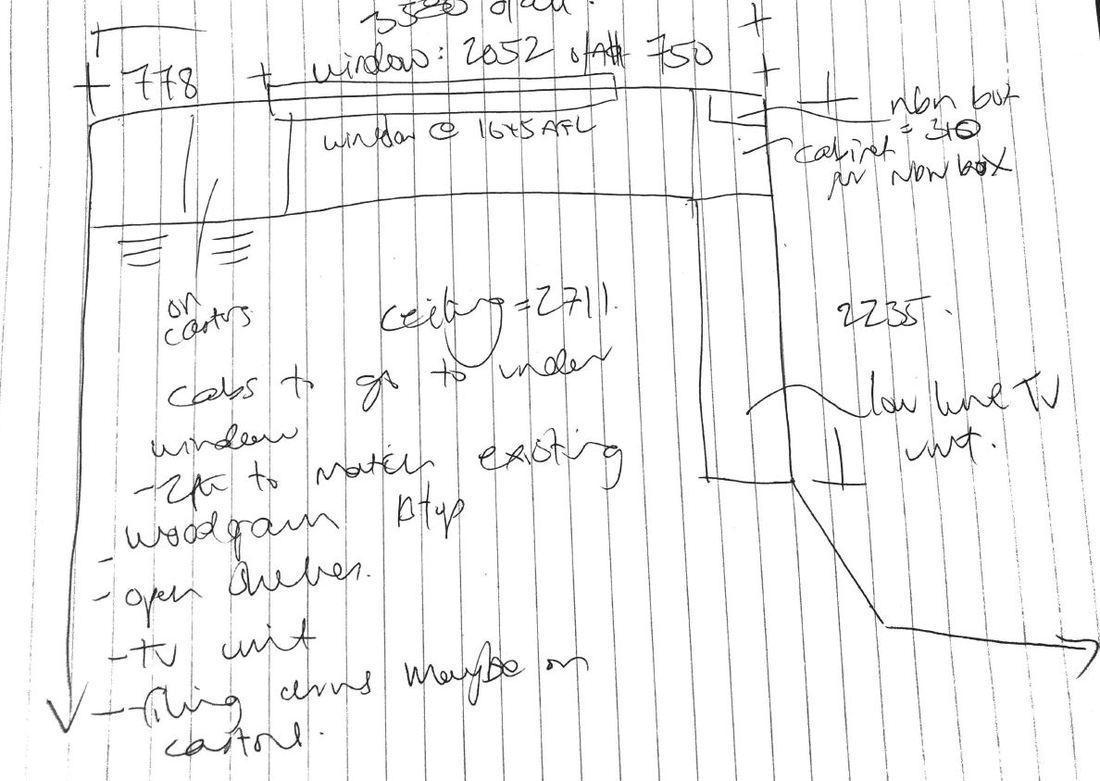 3580 o/all.
window: 2052 o/All 750
778
window @ 1645 AFL
nbn box
= 310
cabinet
for NBN box
on
castrs
ceiling = 2711.
2235.
cabs to go to under
window
low line TV
unit.
- 2pk to match existing
- woodgrain btop
- open shelves.
- TV unit
- filing drws maybe on
castors.